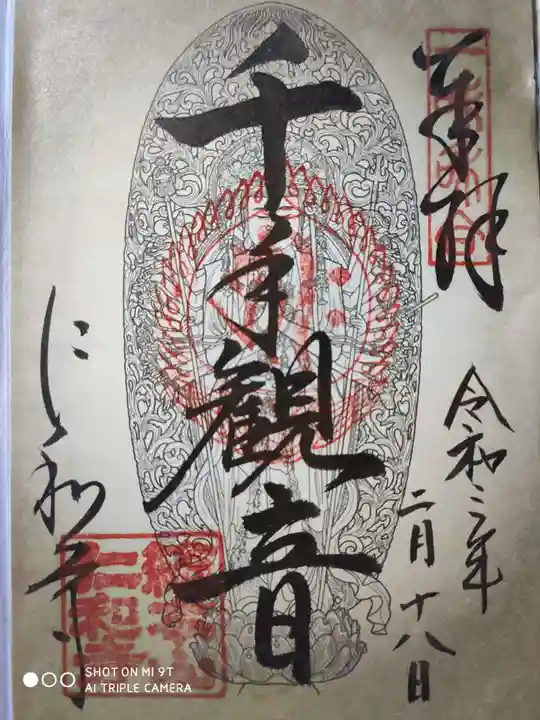 奉拝
令和二年
二月十八日
千手観音
仁和寺
仁和寺
SHOT ON MI 9T
AI TRIPLE CAMERA